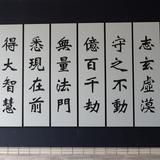 志玄虛漠
守之不動
億百千劫
無量法門
悉現在前
得大智慧